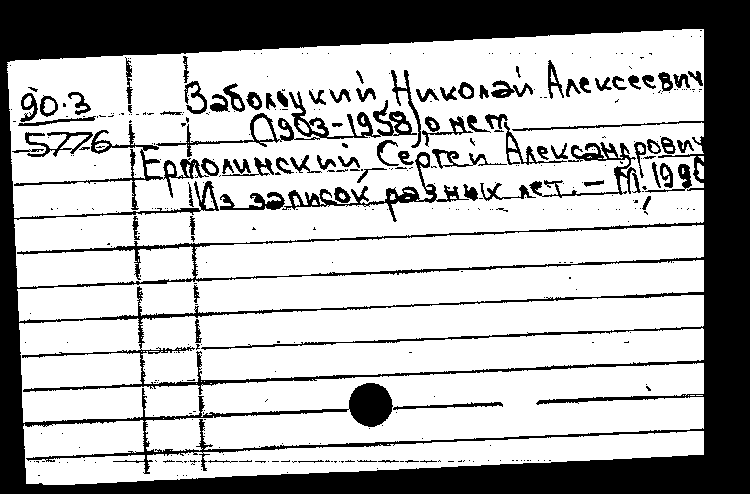 90.3
5776
Заболоцкий, Николай Алексеевич
(1903-1958), о нем
Ермолинский, Сергей Александрович
Из записок разных лет. – М., 1990